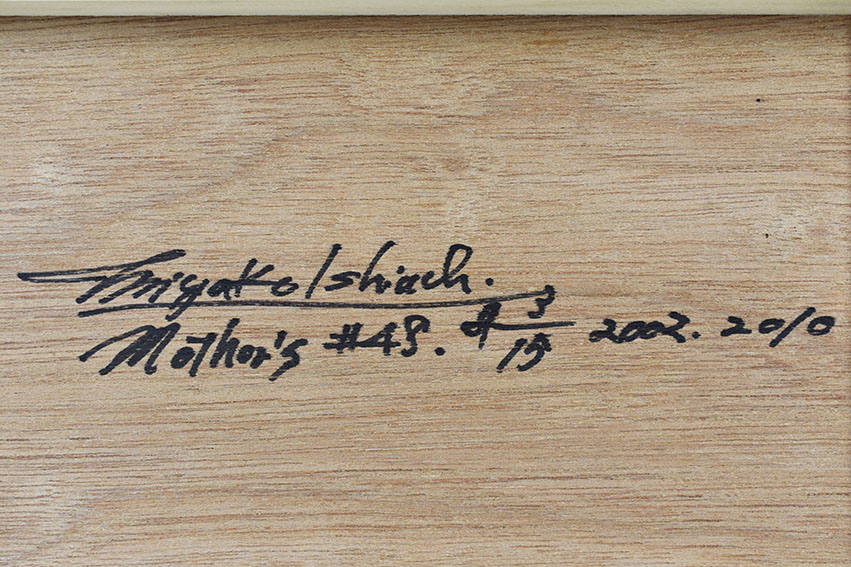 Miyako Ishiuch.
Mother's #48. # 3/15 2002. 2010